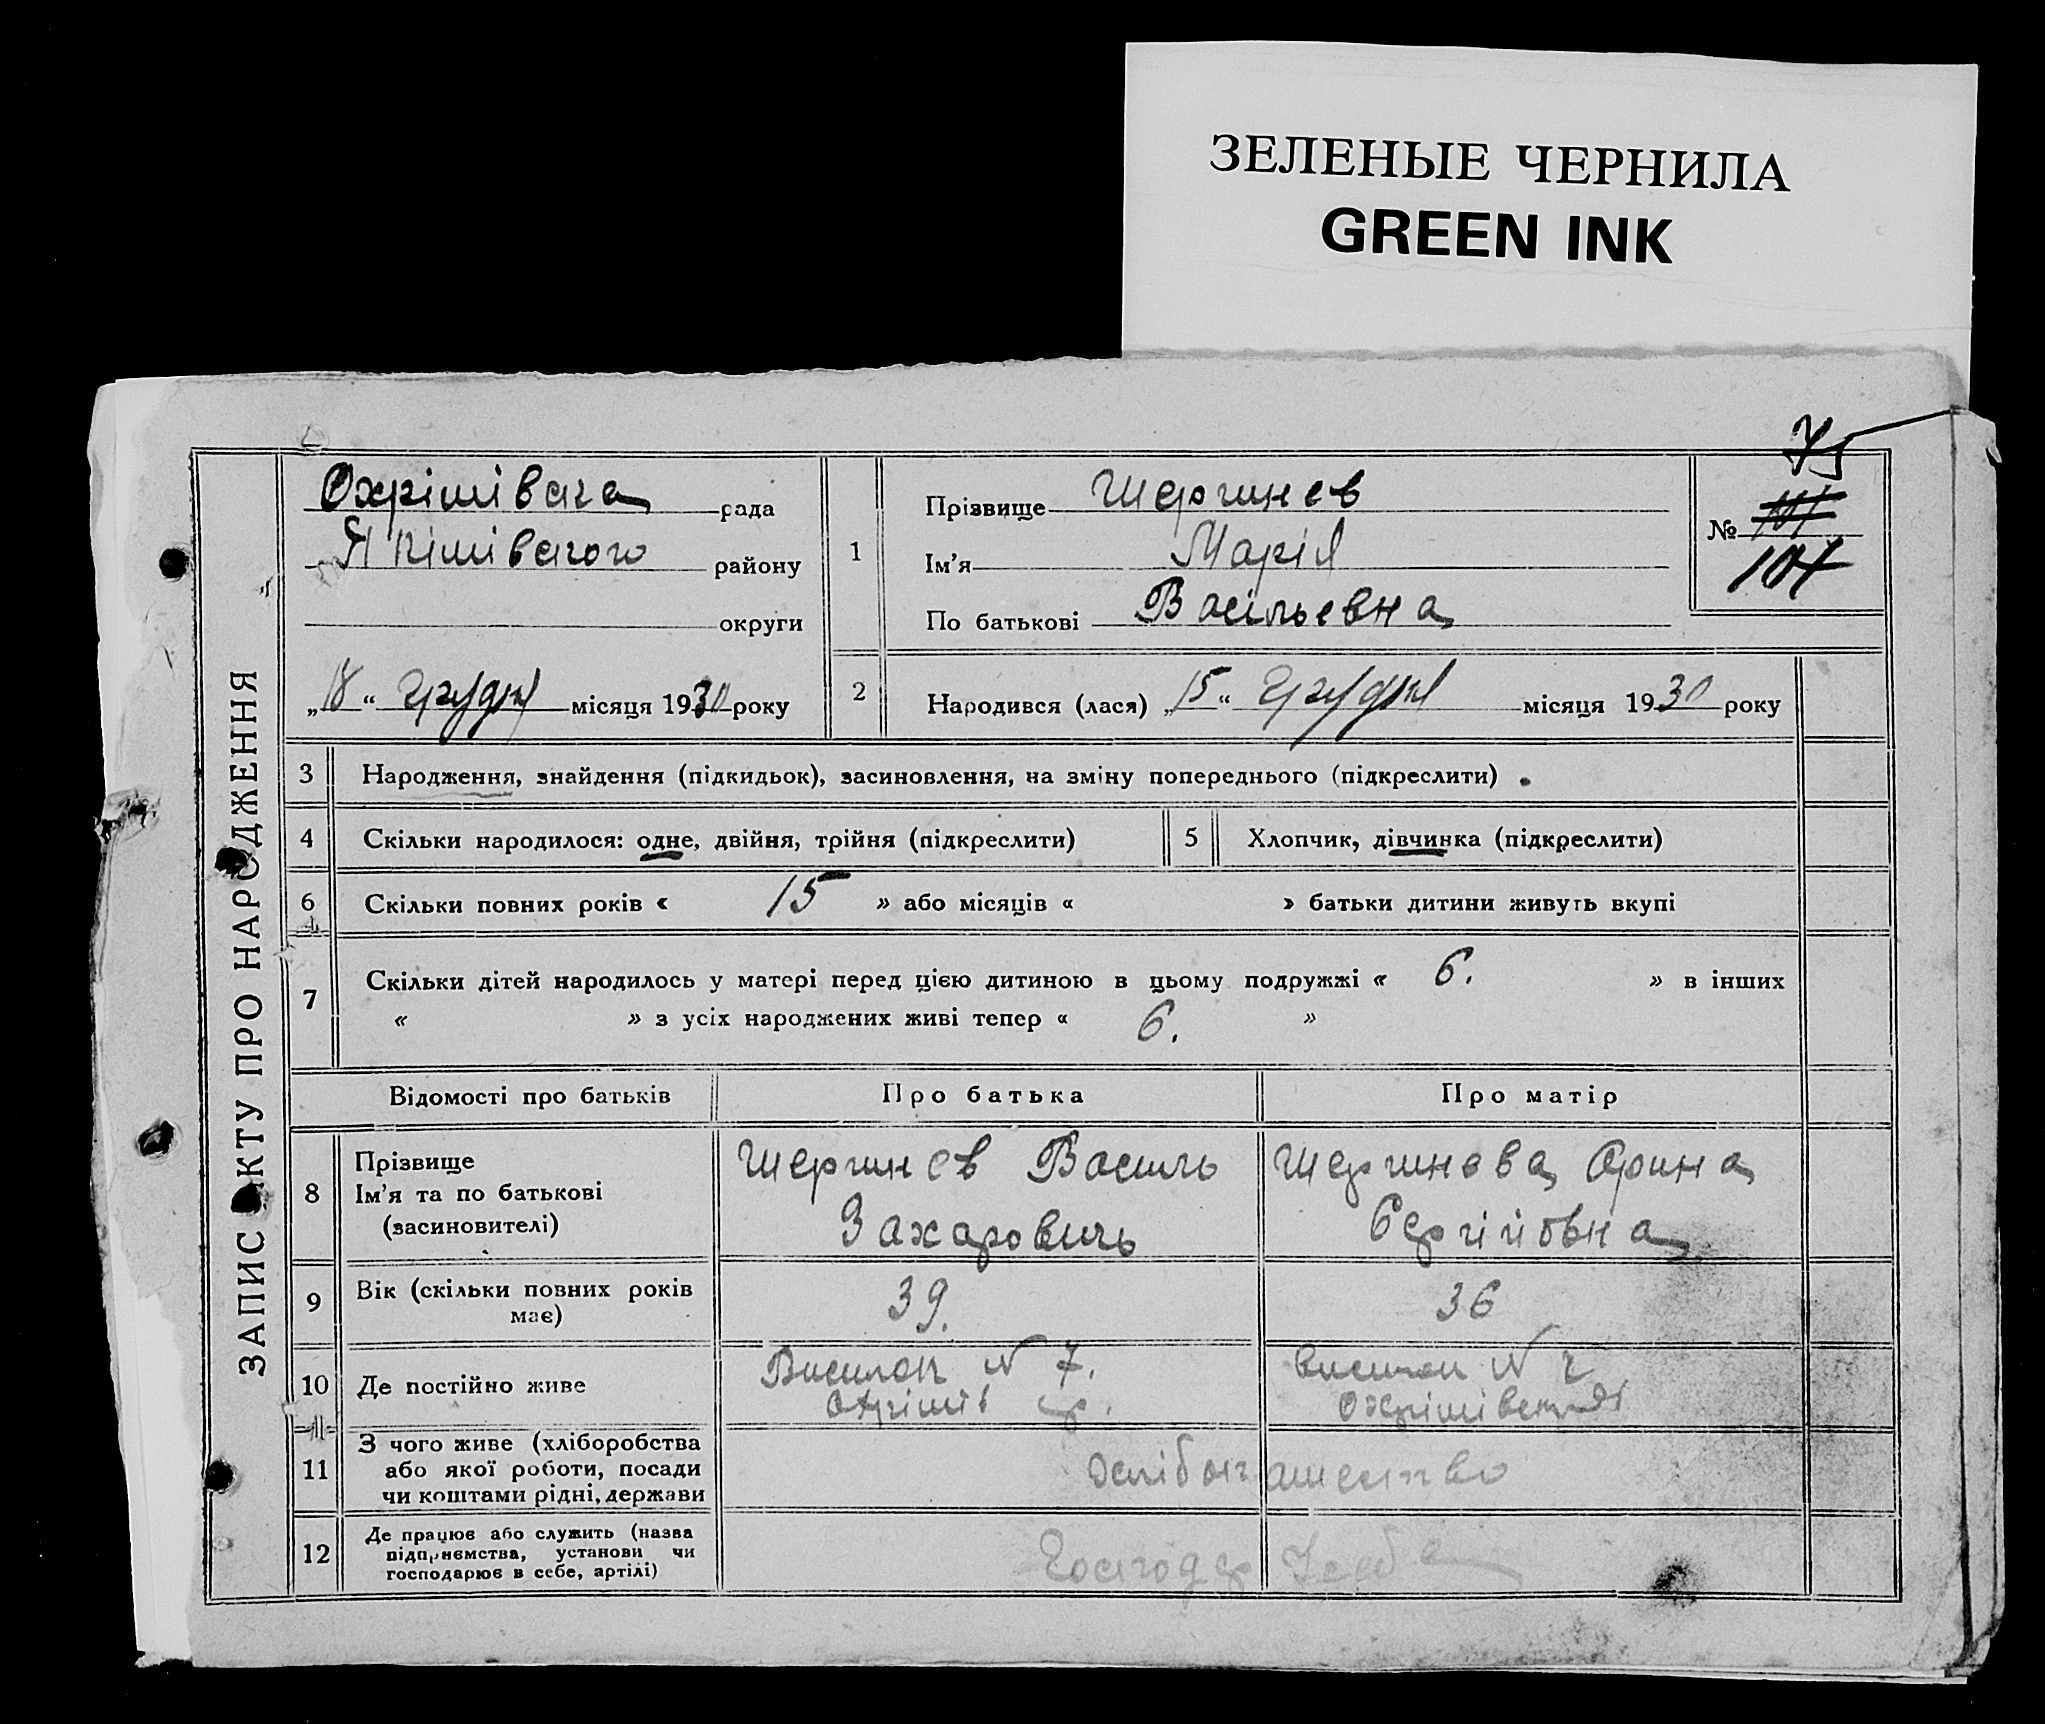 ЗЕЛЕНЫЕ ЧЕРНИЛА
GREEN INK
ЗАПИС АКТУ ПРО НАРОДЖЕННЯ
Охрімівська рада
Якімівського району
округи
„18“ грудня місяця 1930 року
75
№ 101
104
1
Прізвище Шершнев
Ім'я Марія
По батькові Васільевна
2 Народився (лася) „15“ грудня місяця 1930 року
3 Народження, знайдення (підкидьок), засиновлення, на зміну попереднього (підкреслити)
4 Скільки народилося: одне, двійня, трійня (підкреслити)
5 Хлопчик, дівчинка (підкреслити)
6 Скільки повних років « 15 » або місяців « » батьки дитини живуть вкупі
7 Скільки дітей народилось у матері перед цією дитиною в цьому подружжі « 6. » в інших
« » з усіх народжених живі тепер « 6. »
Відомості про батьків
Про батька
Про матір
8
Прізвище
Ім'я та по батькові
(засиновителі)
Шершнев Василь
Захарович
Шершнева Орина
Сергіївна
9
Вік (скільки повних років
має)
39.
36
10 Де постійно живе
Виселок N 7.
Охрімів ср.
виселок N
Охрімівськ
11
З чого живе (хліборобства
або якої роботи, посади
чи коштами рідні, держави
12
Де працює або служить (назва
підприємства, установи чи
господарює в себе, артілі)